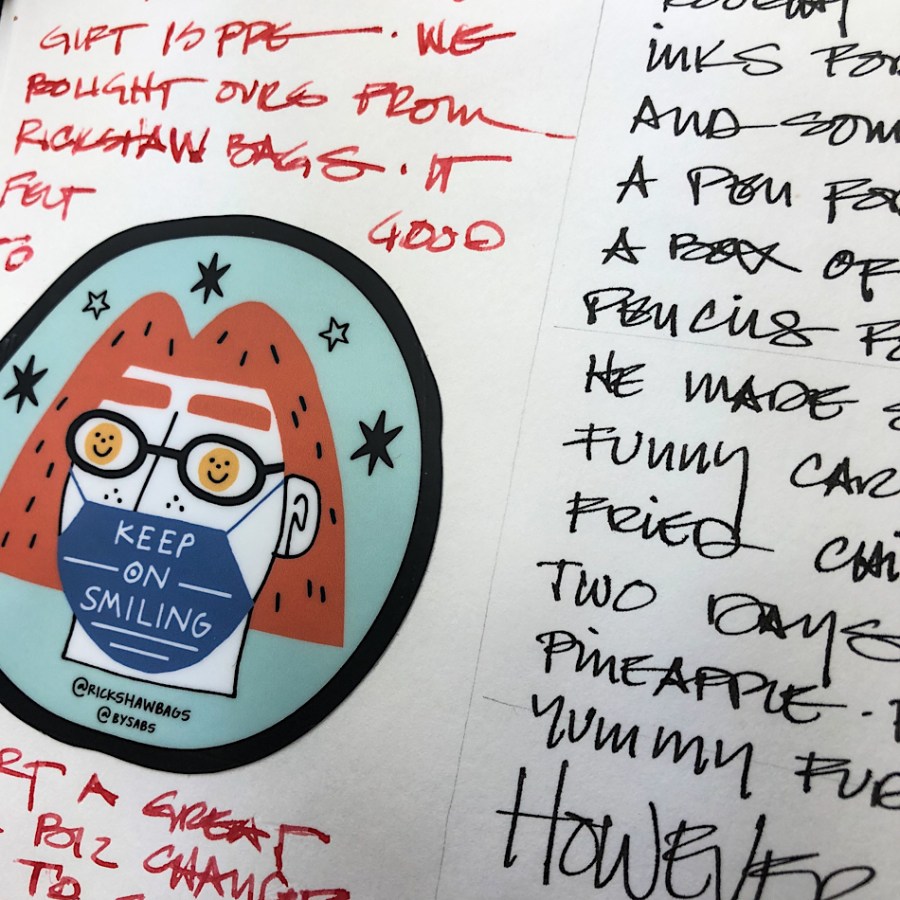 GIFT IS PPE. WE
BOUGHT OURS FROM
RICKSHAW BAGS. IT
FELT
TO GOOD
KEEP
ON
SMILING
@RICKSHAWBAGS
@BYSABS
A GREAT
BIZ
TO
INKS FOR
AND
A PEN FOR
A BOX OF
PENCILS
HE MADE
FUNNY
FRIED
TWO DAYS
PINEAPPLE.
YUMMY
HOWEVER